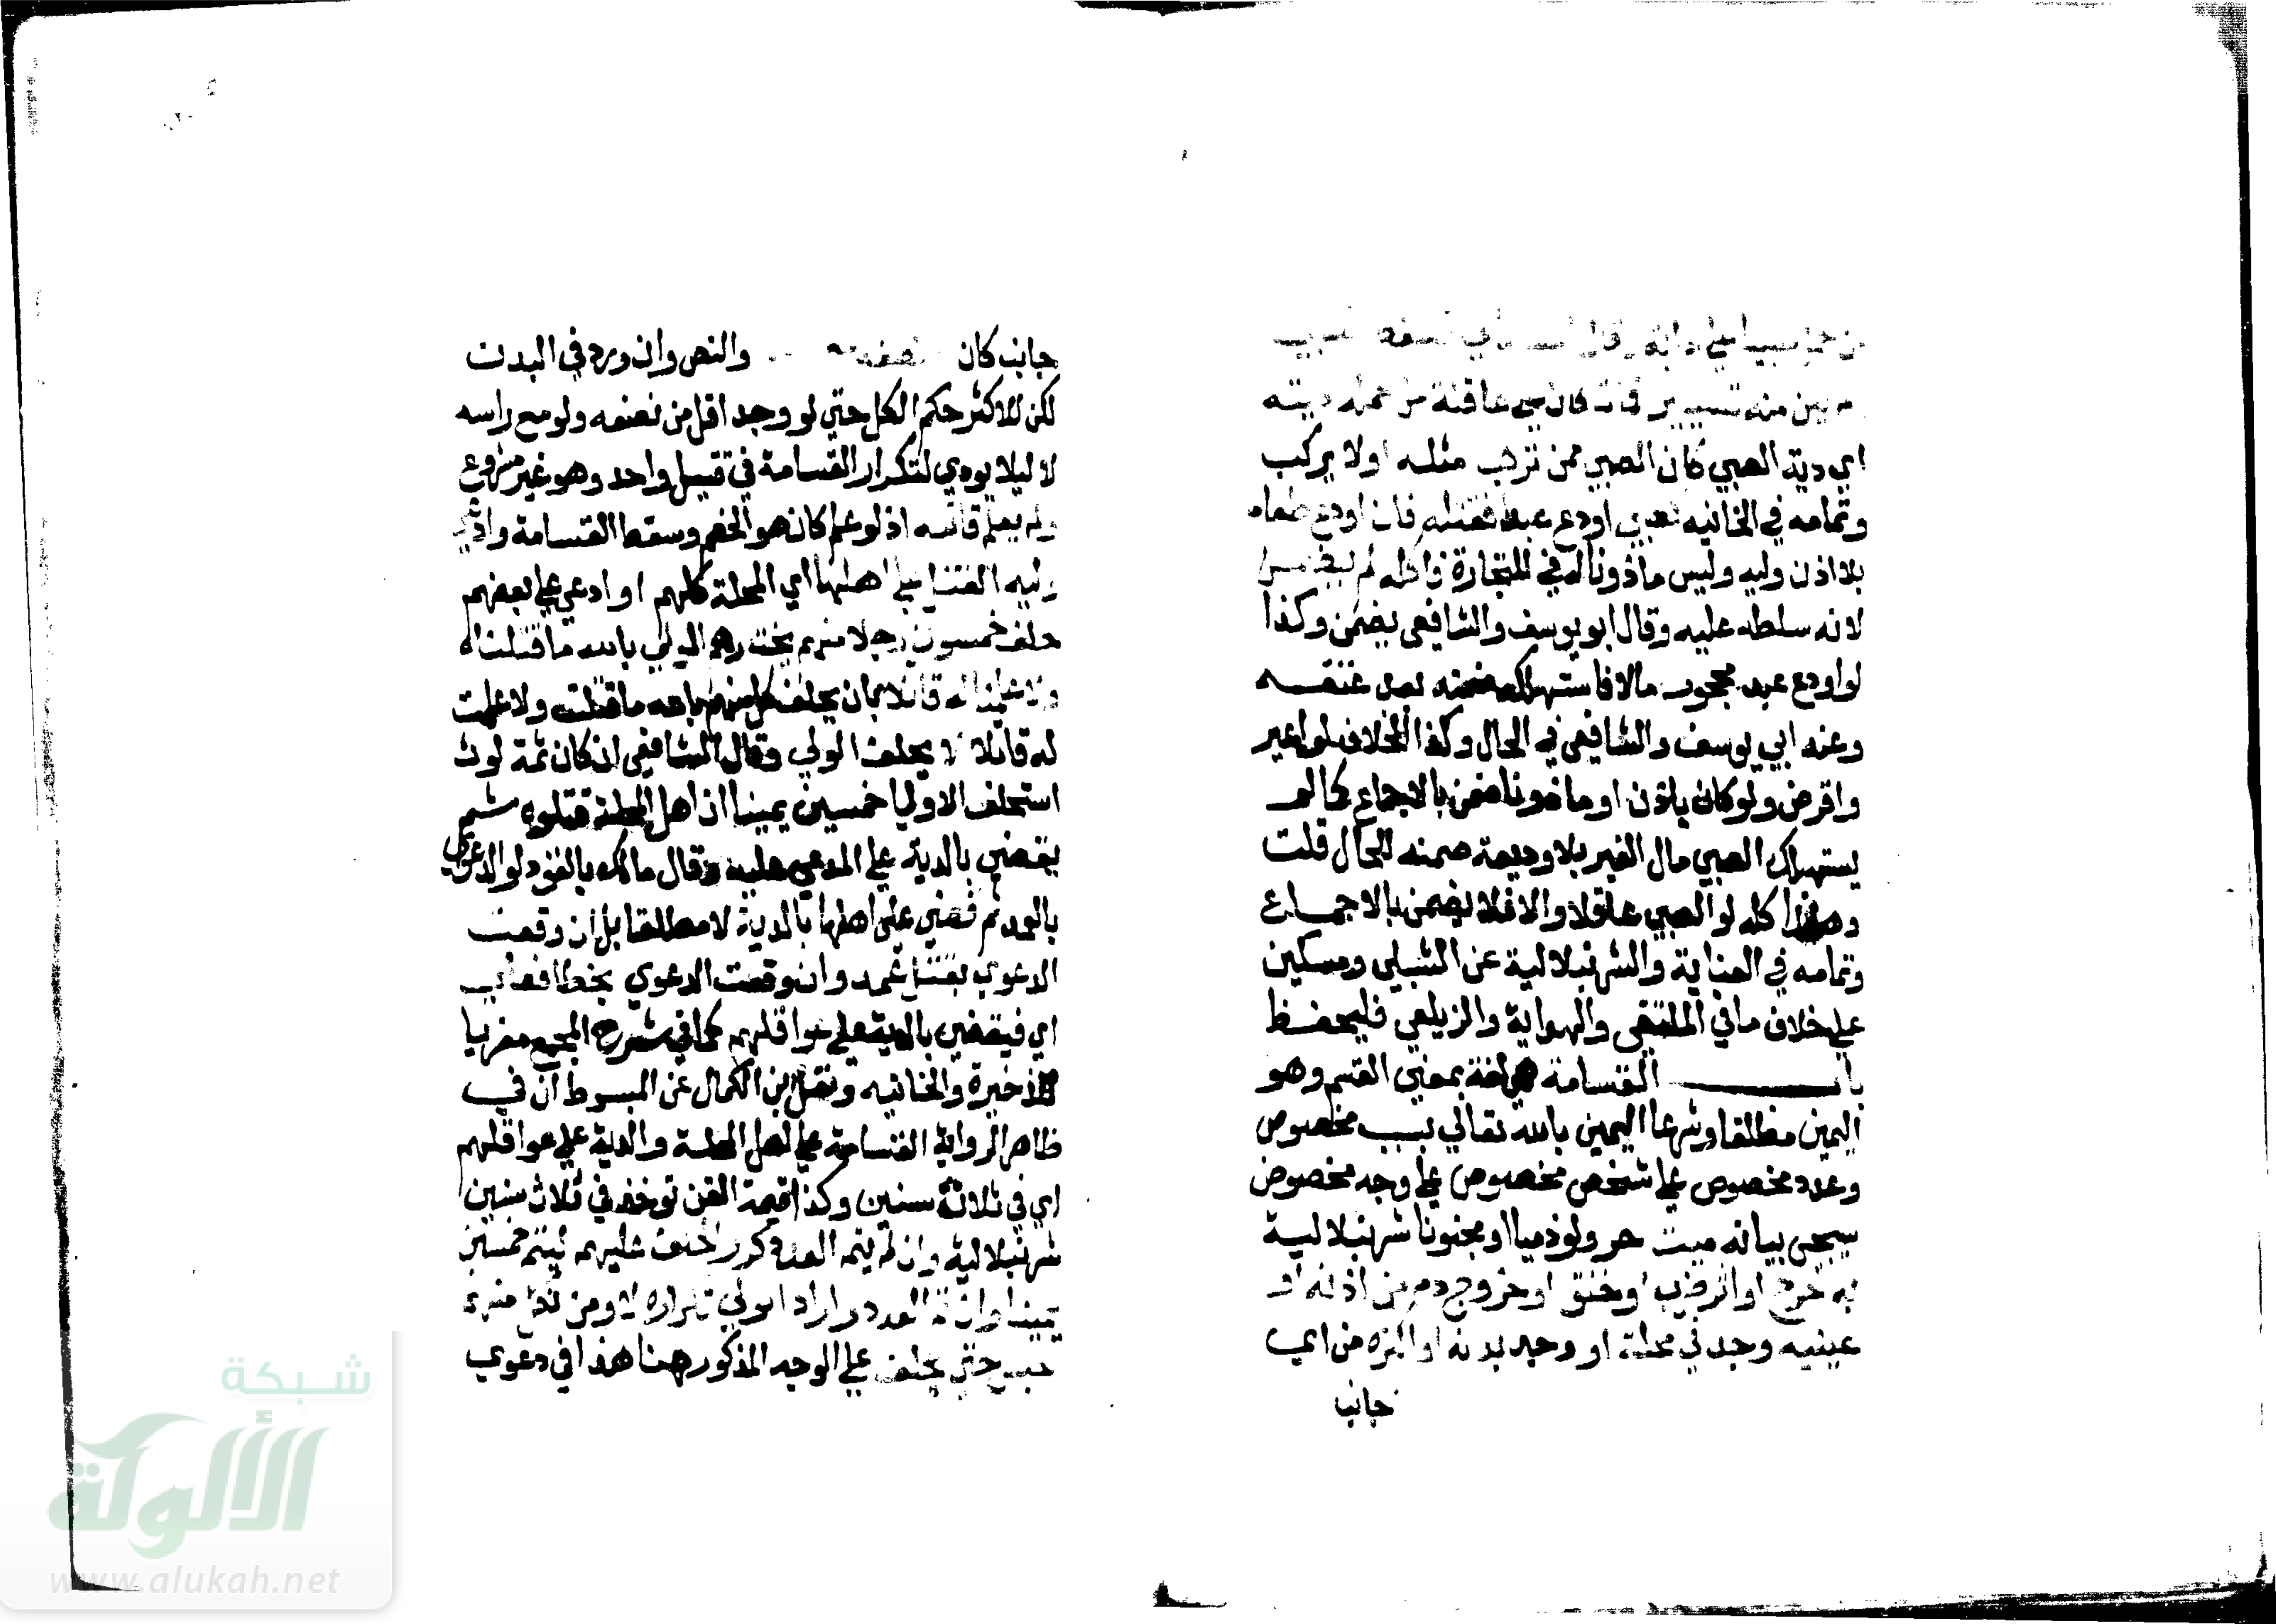 اي دية الصبي كان الصبي ممن تركب مثله اولا يركب
وتمامه في الخانيه كصبي اودع عبدا فقتله فان اودع طعاما
بلا اذن وليه وليس ماذونا له في التجارة فاكله لم يضمن
لانه سلطه عليه وقال ابو يوسف والشافعي يضمن وكذا
لو اودع عبد محجور مالا فاستهلكه ضمنه بعد عتقه
وعند ابي يوسف والشافعي في الحال وكذا الخلاف لو اعير
واقرض ولو كان باذن او ماذونا ضمن بالاجماع كما لو
يستهلك الصبي مال الغير بلا وديعة ضمنه للحال قلت
وهذا كله لو الصبي عاقلا والا فلا يضمن بالاجماع
وتمامه في العناية والشرنبلالية عن الشبلي ومسكين
علي خلاف ما في الملتقي والهداية والزيلعي فليحفظ
باب القسامة هي لغة بمعني القسم وهو
اليمين مطلقا وشرعا اليمين بالله تعالي بسبب مخصوص
وعدد مخصوص علي شخص مخصوص علي وجه مخصوص
سيجي بيانه ميت حر ولو ذميا او مجنونا شرنبلالية
به جرح او اثر ضرب او خنق او خروج دم من اذنه او
عينيه وجد في محلة او وجد بدنه او اكثره من اي
جانب
جانب كان والنص وان ورد في البدن
لكن للاكثر حكم الكل حتي لو وجد اقل من نصفه ولو مع راسه
لا ليلا يودي لتكرار القسامة في قتيل واحد وهو غير مشروع
ولم يعلم قاتله اذ لو علم كان هو الخصم وسقط القسامة وادعي
وليه القتل علي اهلها اي المحلة كلهم او ادعي علي بعضهم
حلف خمسون رجلا منهم يختارهم الولي بالله ما قتلناه
ولا علمنا له قاتلا بان يحلف كل منهم بالله ما قتلت ولا علمت
له قاتلا لا يحلف الولي وقال الشافعي ان كان ثمة لوث
استحلف الاوليا خمسين يمينا ان اهل المحلة قتلوه ثم
يقضي بالدية علي المدعي عليه وقال مالك بالقود لو الدعوي
بالعمد ثم قضي علي اهلها بالدية لا مطلقا بل ان وقعت
الدعوي بقتل عمد وان وقعت الدعوي بخطا فعلي
اي فيقضي بالدية علي عواقلهم كما في شرح المجمع معزيا
للذخيرة والخانيه ونقل ابن الكمال عن المبسوط ان في
ظاهر الرواية القسامة علي اهل المحلة والدية علي عواقلهم
اي في ثلاثة سنين وكذا قيمة القن توخذ في ثلاث سنين
شرنبلالية وان لم يتم العدد كرر الحلف عليهم ليتم خمسين
يمينا وان تم العدد واراد الولي تكراره لا ومن نكل منهم
حبس حتي يحلف علي الوجه المذكور هنا هذا في دعوي
شبكة
الألوكة
www.alukah.net